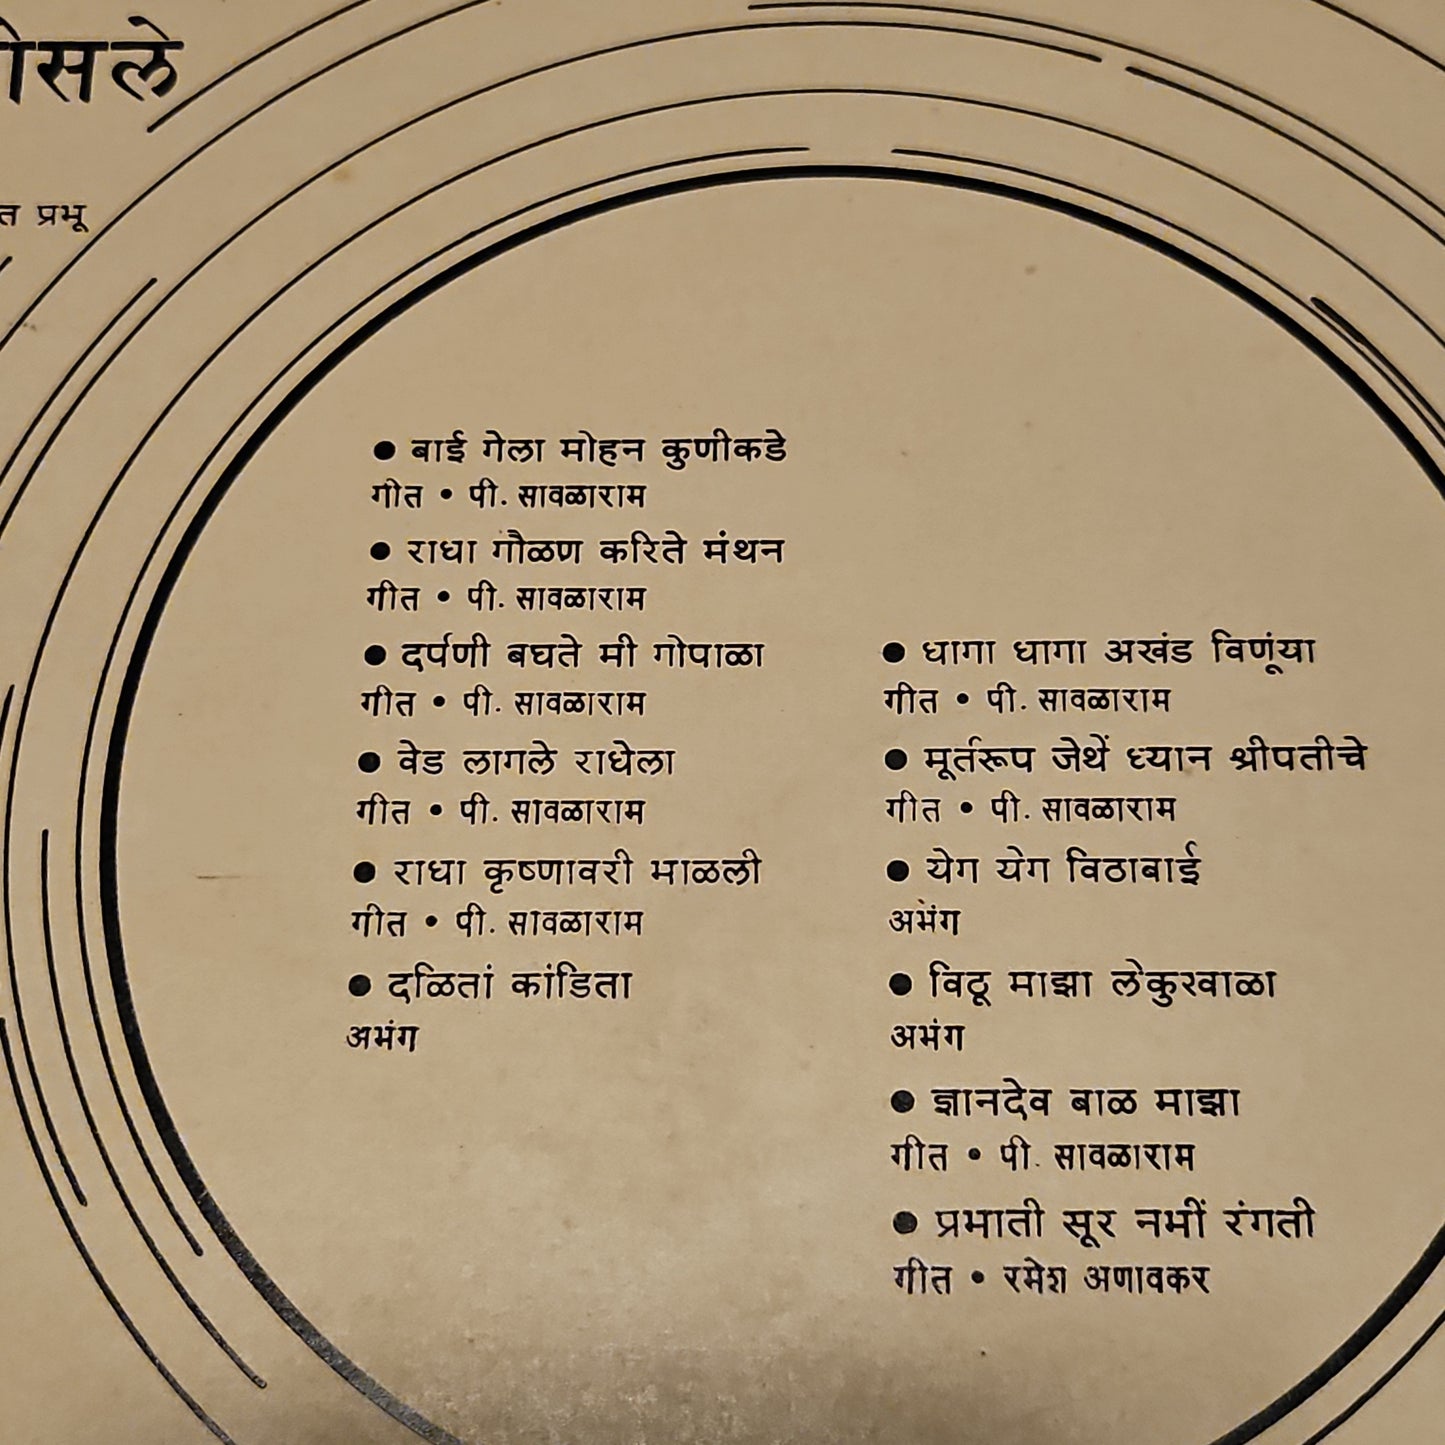 प्रभू
● बाई गेला मोहन कुणीकडे
गीत • पी. सावळाराम
● राधा गौळण करिते मंथन
गीत • पी. सावळाराम
● दर्पणी बघते मी गोपाळा
गीत • पी. सावळाराम
● वेड लागले राधेला
गीत • पी. सावळाराम
● राधा कृष्णावरी भाळली
गीत • पी. सावळाराम
● दळितां कांडिता
अभंग
● धागा धागा अखंड विणूंया
गीत • पी. सावळाराम
● मूर्तरूप जेथें ध्यान श्रीपतीचे
गीत • पी. सावळाराम
● येग येग विठाबाई
अभंग
● विठू माझा लेकुरवाळा
अभंग
● ज्ञानदेव बाळ माझा
गीत • पी. सावळाराम
● प्रभाती सूर नभीं रंगती
गीत • रमेश अणावकर